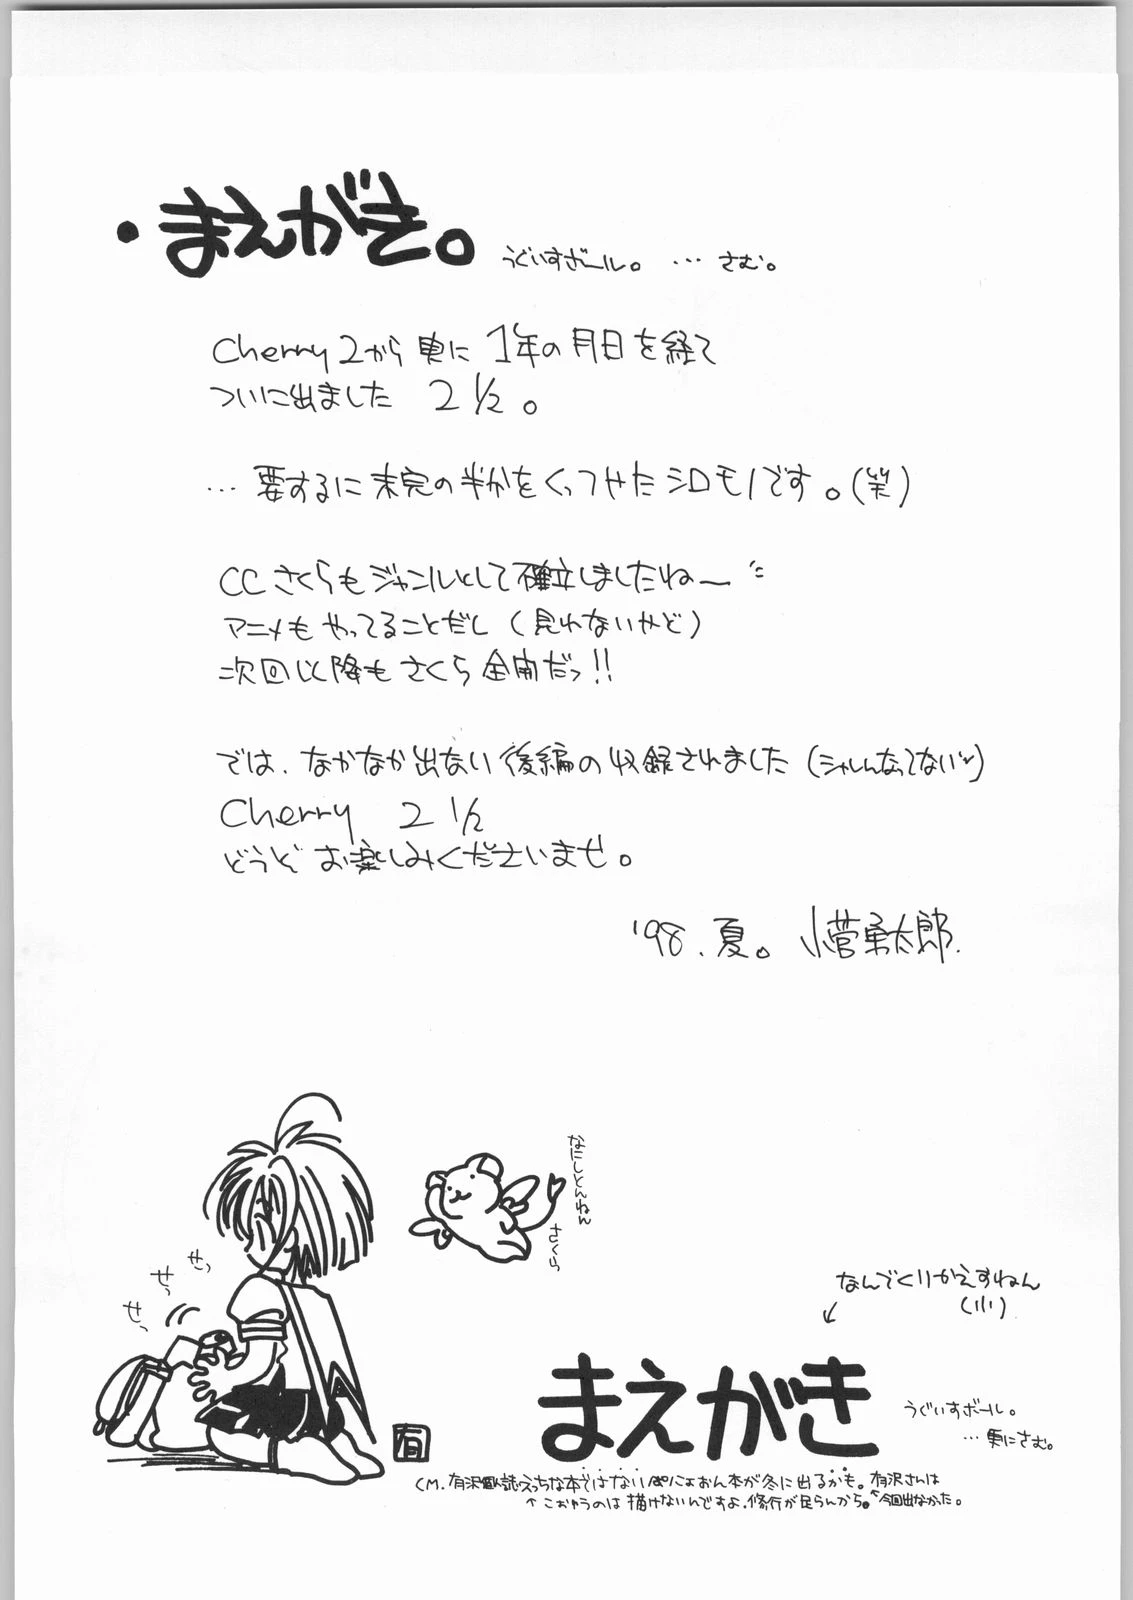 ・まえがき。
うぐいすボール。 … さむ。
Cherry2から 更に 1年の月日を経て
ついに出ました 2 1/2。
… 要するに 未完の半分をくっつけた シロモノです。(笑)
CCさくらもジャンルとして確立しましたねー
アニメもやってることだし (見れないけど)
次回以降も さくら 全開だっ!!
では、なかなか出ない後編の収録されました (シャレんなってない)
Cherry 2 1/2
どうぞ お楽しみくださいませ。
'98.夏。 小菅勇太郎.
なにしとんねん
さくら
せっ
せっ
せっ
有
なんでくりかえすねん
(川)
まえがき
うぐいすボール。
… 更にさむ。
CM. 有沢個人誌(えっちな本ではない)ぱにょおん本が冬に出るかも。有沢さんは
↑ こおゆうのは 描けないんですよ.修行が足らんから。↑今回出なかった。